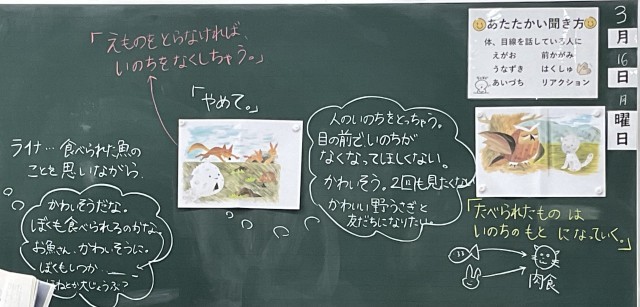 3
月
16
日
月
曜
日
あたたかい聞き方
体、目線を話している人に
えがお 前かがみ
うなずき はくしゅ
あいづち リアクション
「えものをとらなければ、
いのちをなくしちゃう。」
「やめて。」
人のいのちをとっちゃう。
目の前でいのちが
なくなってほしくない。
かわいそう。2回も見たくない
かわいい野うさぎと
友だちになりたい
ライナ…食べられた魚の
ことを思いながら
かわいそうだな。
ぼくも食べられるのかな。
お魚さん、かわいそうに。
ぼくもいつか
「たべられたものは
いのちのもとになっていく。」
肉食